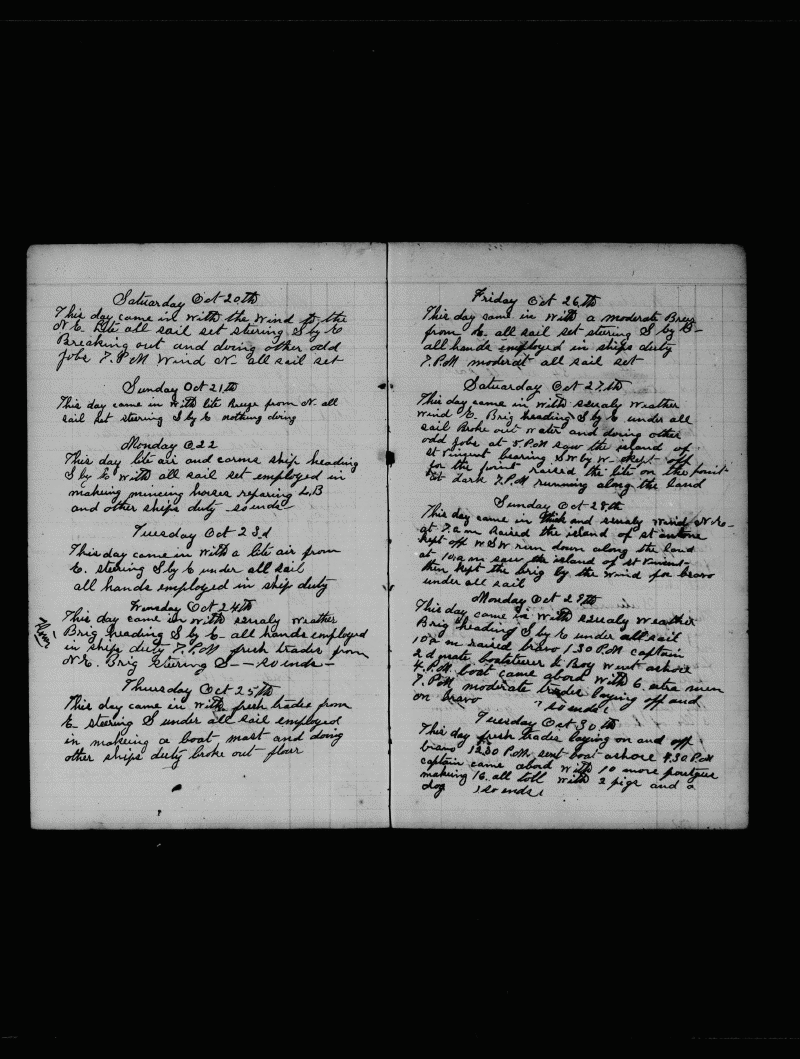 Satuarday Oct 20th
This day came in With the Wind to the
N.E. Lite all sail set stering S by E
Breaking out and doing other odd
jobs 7.P.M Wind N. all sail set
Sunday Oct 21th
This day came in With lite Breze from N. all
sail set stering S by E nothing doing
Monday O.22
This day lite air and carms ship heading
S by E With all sail set employed in
making mincing horses reparing L.B
and other ships duty so ends
Tuesday Oct 23d
This day came in With a lite air from
E. stering S by E under all sail
all hands employed in ship duty
Wensday Oct 24th
This day came in With squaly Weather
Brig heading S by E all hands employed
in ships duty 7.P.M fresh trades from
N.E. Brig stering S so ends
Thursday Oct 25th
This day came in With fresh trades from
E. stering S under all sail employed
in makeing a boat mast and doing
other ships duty broke out flour
Flour
Friday Oct 26th
This day came in With a moderate Brez
from E. all sail set stering S by E
all hands employed in ships duty
7.P.M moderat all sail set
Satuarday Oct 27.th
This day came in With squaly Weather
Wind E. Brig heading S by E under all
sail Broke out Water and doing other
odd jobs at 5.P.M saw the island of
st Vincent bearing SW by W kept off
for the point raised the lite on the point
at Dark 7.P.M running along the land
Sunday Oct 28.th
This day came in thick and squaly Wind N.E.
at 7.a.m Raised the island of st antone
kept off W S W run down along the land
at 10.a.m saw the island of st Vincent
then kept the brig by the Wind for bravo
under all sail
Monday Oct 29th
This day came in With squaly Weather
Brig heading S by E under all sail
10 a m raised bravo 1.30 P.M captain
2 d mate boatsteerer & Boy Went ashore
4.P.M. boat came abord With 6 extra men
7.P.M moderate trades laying off and
on bravo so ends
Tuesday Oct 30th
This day fresh trades laying on and off
bravo 12.30 P.M. sent boat ashore 4.30 P.M
captain came abord With 10 more portgues
making 16. all told With 2 pigs and a
dog so ends